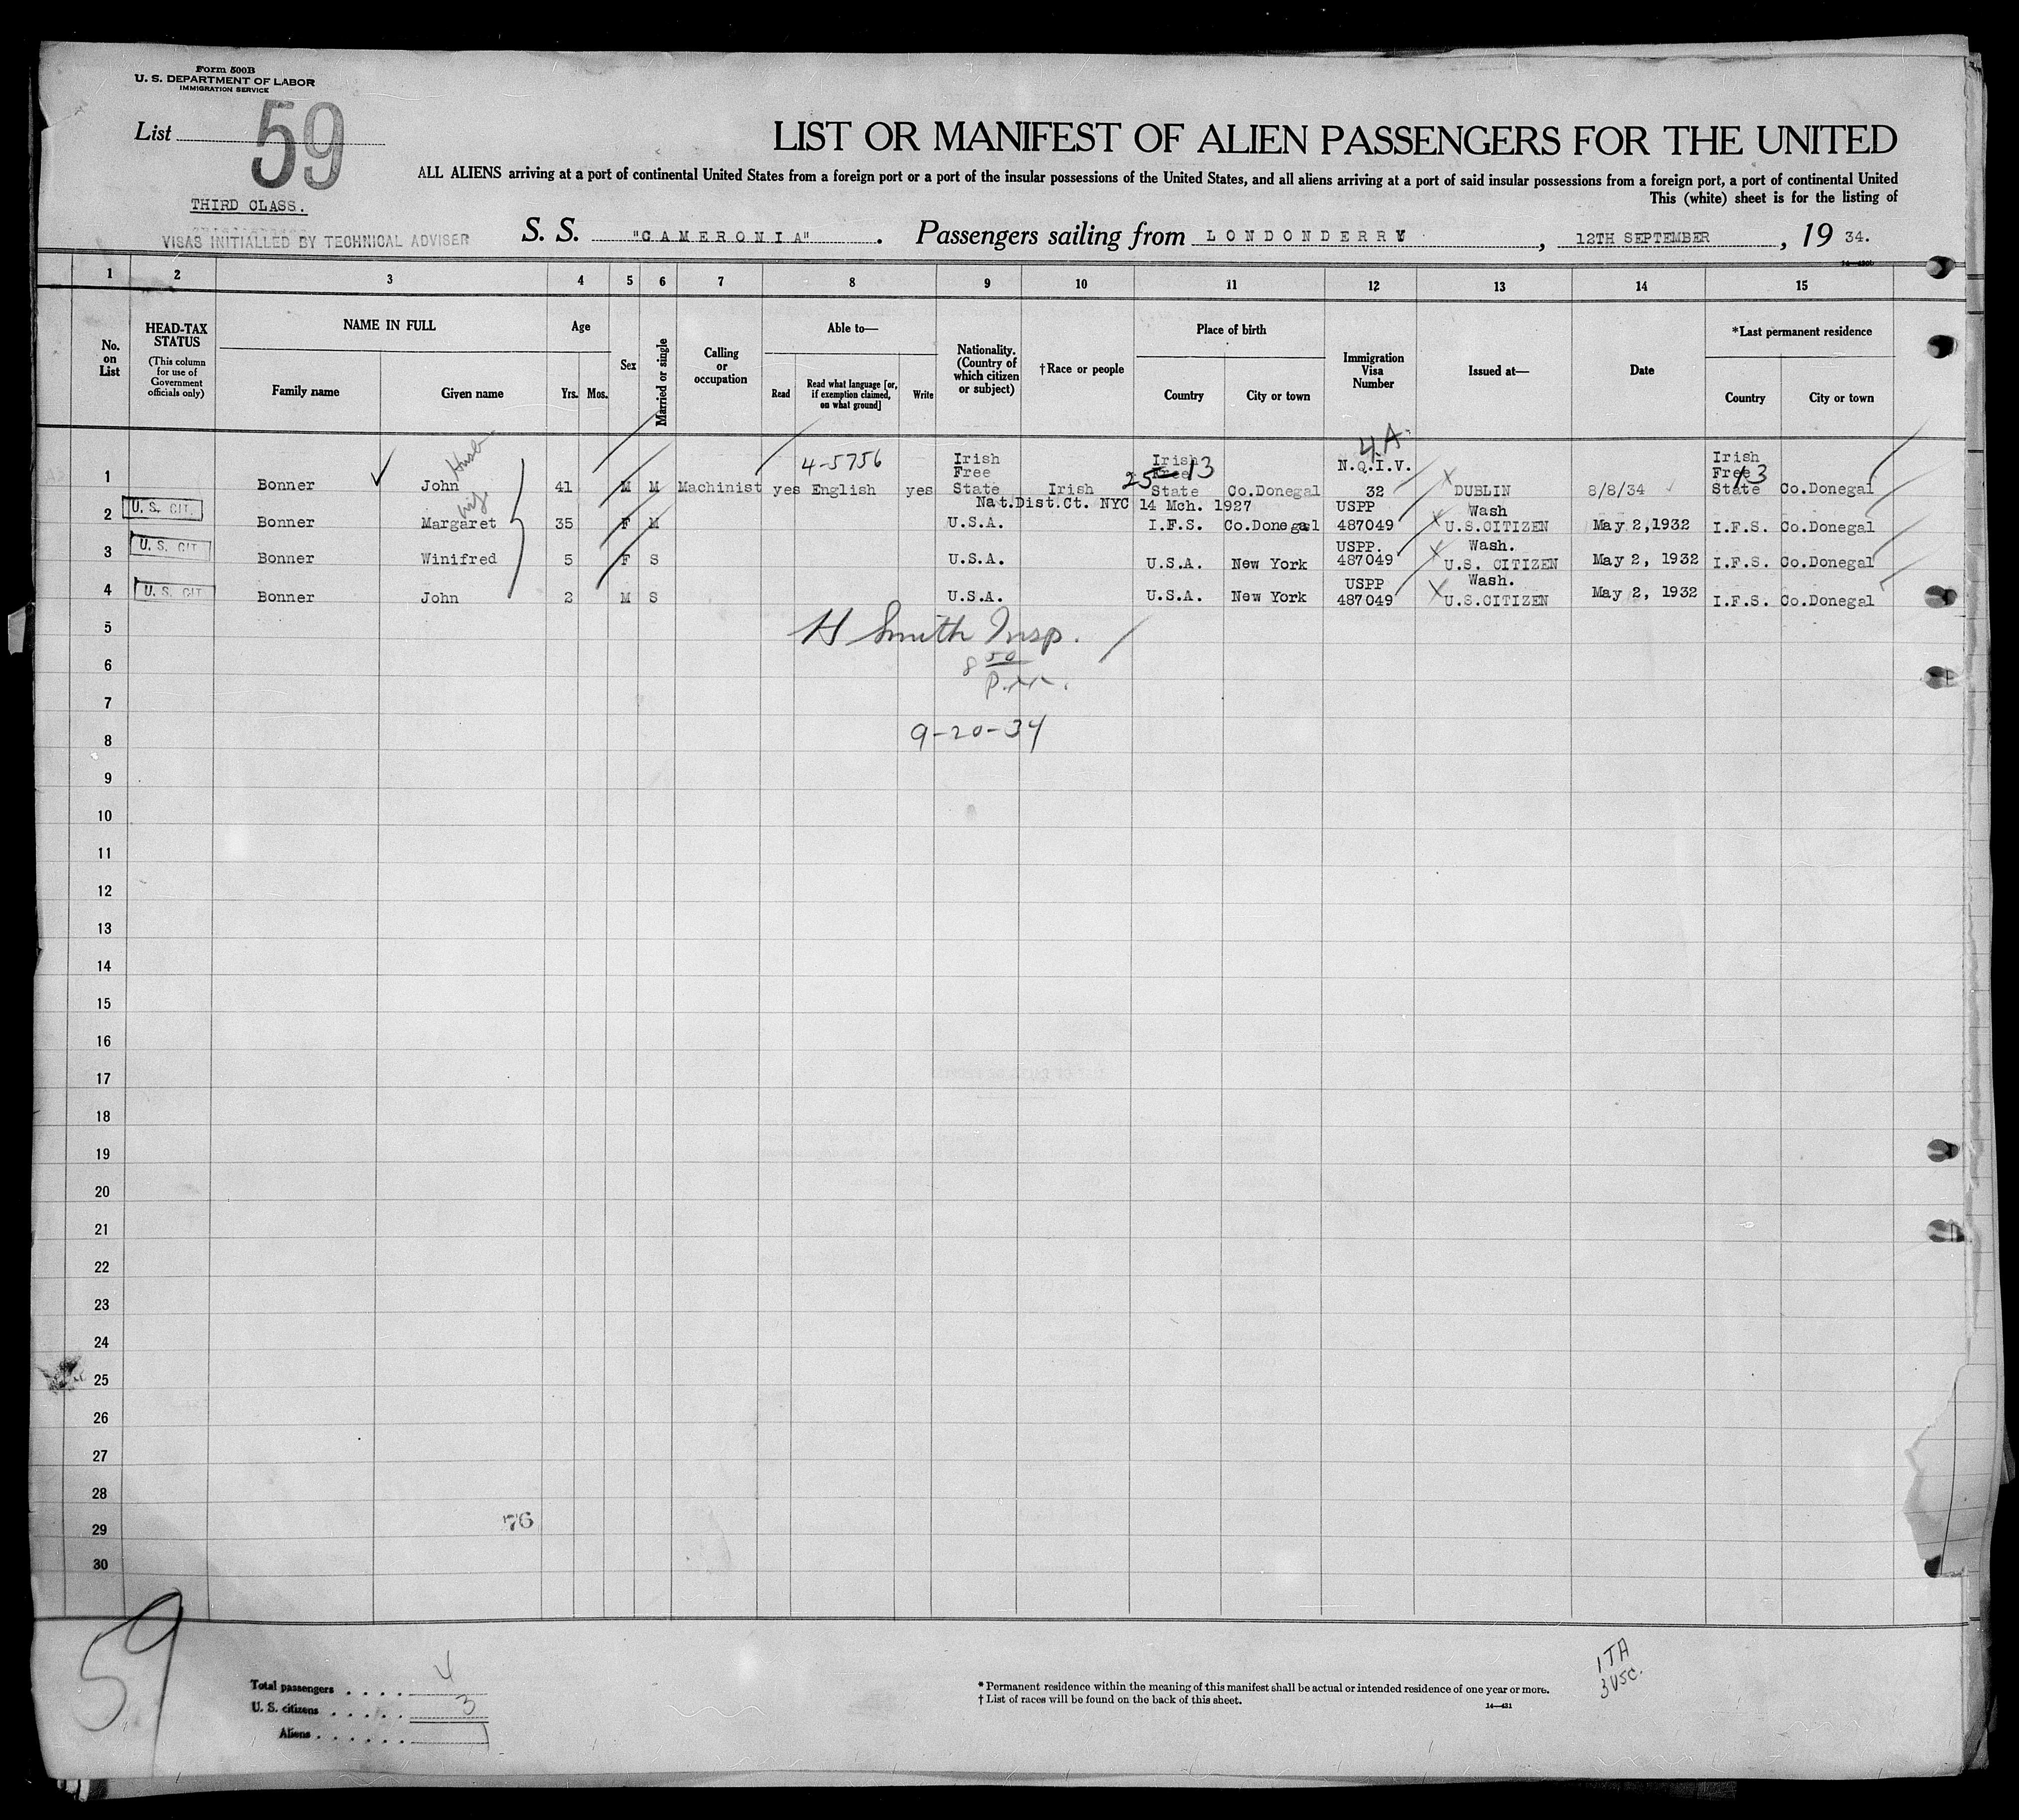 Form 500B
U. S. DEPARTMENT OF LABOR
IMMIGRATION SERVICE
List 59
THIRD CLASS.
VISAS INITIALLED BY TECHNICAL ADVISER
LIST OR MANIFEST OF ALIEN PASSENGERS FOR THE UNITED
ALL ALIENS arriving at a port of continental United States from a foreign port or a port of the insular possessions of the United States, and all aliens arriving at a port of said insular possessions from a foreign port, a port of continental United
This (white) sheet is for the listing of
S. S. "CAMERONIA". Passengers sailing from LONDONDERRY, 12TH SEPTEMBER, 19 34.
1 2 3 4 5 6 7 8 9 10 11 12 13 14 15
No. on List
HEAD-TAX STATUS (This column for use of Government officials only)
NAME IN FULL
Family name Given name
Age
Yrs. Mos.
Sex
Married or single
Calling or occupation
Able to—
Read Read what language [or, if exemption claimed, on what ground] Write
Nationality. (Country of which citizen or subject)
†Race or people
Place of birth
Country City or town
Immigration Visa Number
Issued at—
Date
*Last permanent residence
Country City or town
4A.
4-5756
25 13
13
1 Bonner John Husb 41 M M Machinist yes English yes Irish Free State Irish Irish Free State Co.Donegal N.Q.I.V. 32 DUBLIN 8/8/34 Irish Free State Co.Donegal
Nat.Dist.Ct. NYC 14 Mch. 1927
2 U. S. CIT. Bonner Margaret wife 35 F M U.S.A. I.F.S. Co.Donegal USPP 487049 Wash U.S.CITIZEN May 2,1932 I.F.S. Co.Donegal
3 U. S. CIT Bonner Winifred 5 F S U.S.A. U.S.A. New York USPP. 487049 Wash. U.S. CITIZEN May 2, 1932 I.F.S. Co.Donegal
4 U. S. CIT Bonner John 2 M S U.S.A. U.S.A. New York USPP 487049 Wash. U.S.CITIZEN May 2, 1932 I.F.S. Co.Donegal
5
H Smith Insp.
6
8 50
P.m.
7
8
9-20-34
9
10
11
12
13
14
15
16
17
18
19
20
21
22
23
24
25
26
27
28
29
76
30
59
Total passengers . . . . 4
U. S. citizens . . . . . 3
Aliens . . . . . . 1
* Permanent residence within the meaning of this manifest shall be actual or intended residence of one year or more.
† List of races will be found on the back of this sheet.
14—431
1 TA
3 USC.